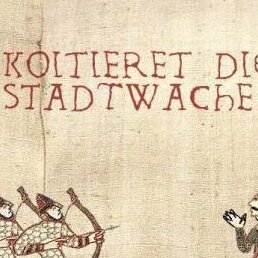 KOITIERET DIE
STADTWACHE